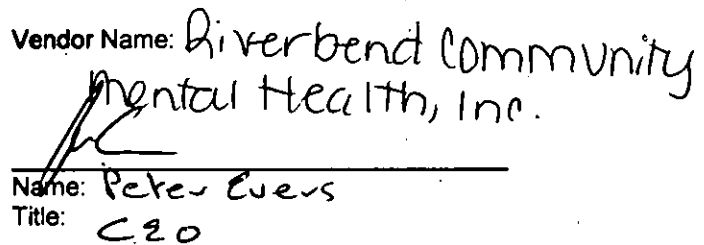 Vendor Name: Riverbend Community
Mental Health, Inc.
Name: Peter Evers
Title: CEO